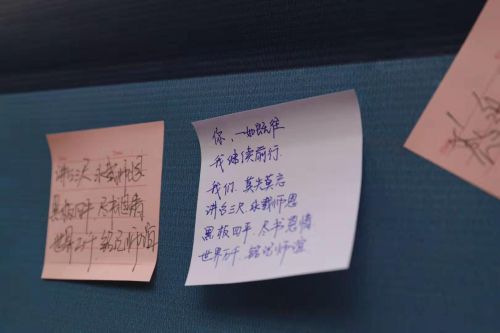 讲台三尺 永载师恩
黑板四平 尽书恩情
世界万千 铭记师谊
你，一如既往
我 继续前行.
我们. 莫失莫忘
讲台三尺. 永载师恩
黑板四平. 尽书恩情
世界万千. 铭记师谊.